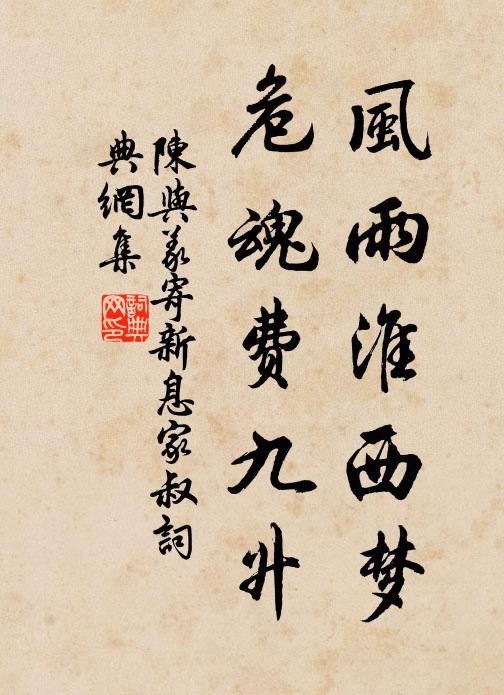 風雨淮西梦
危魂费九升
陳與義寄新息家叔詞
典網集
詞典网印